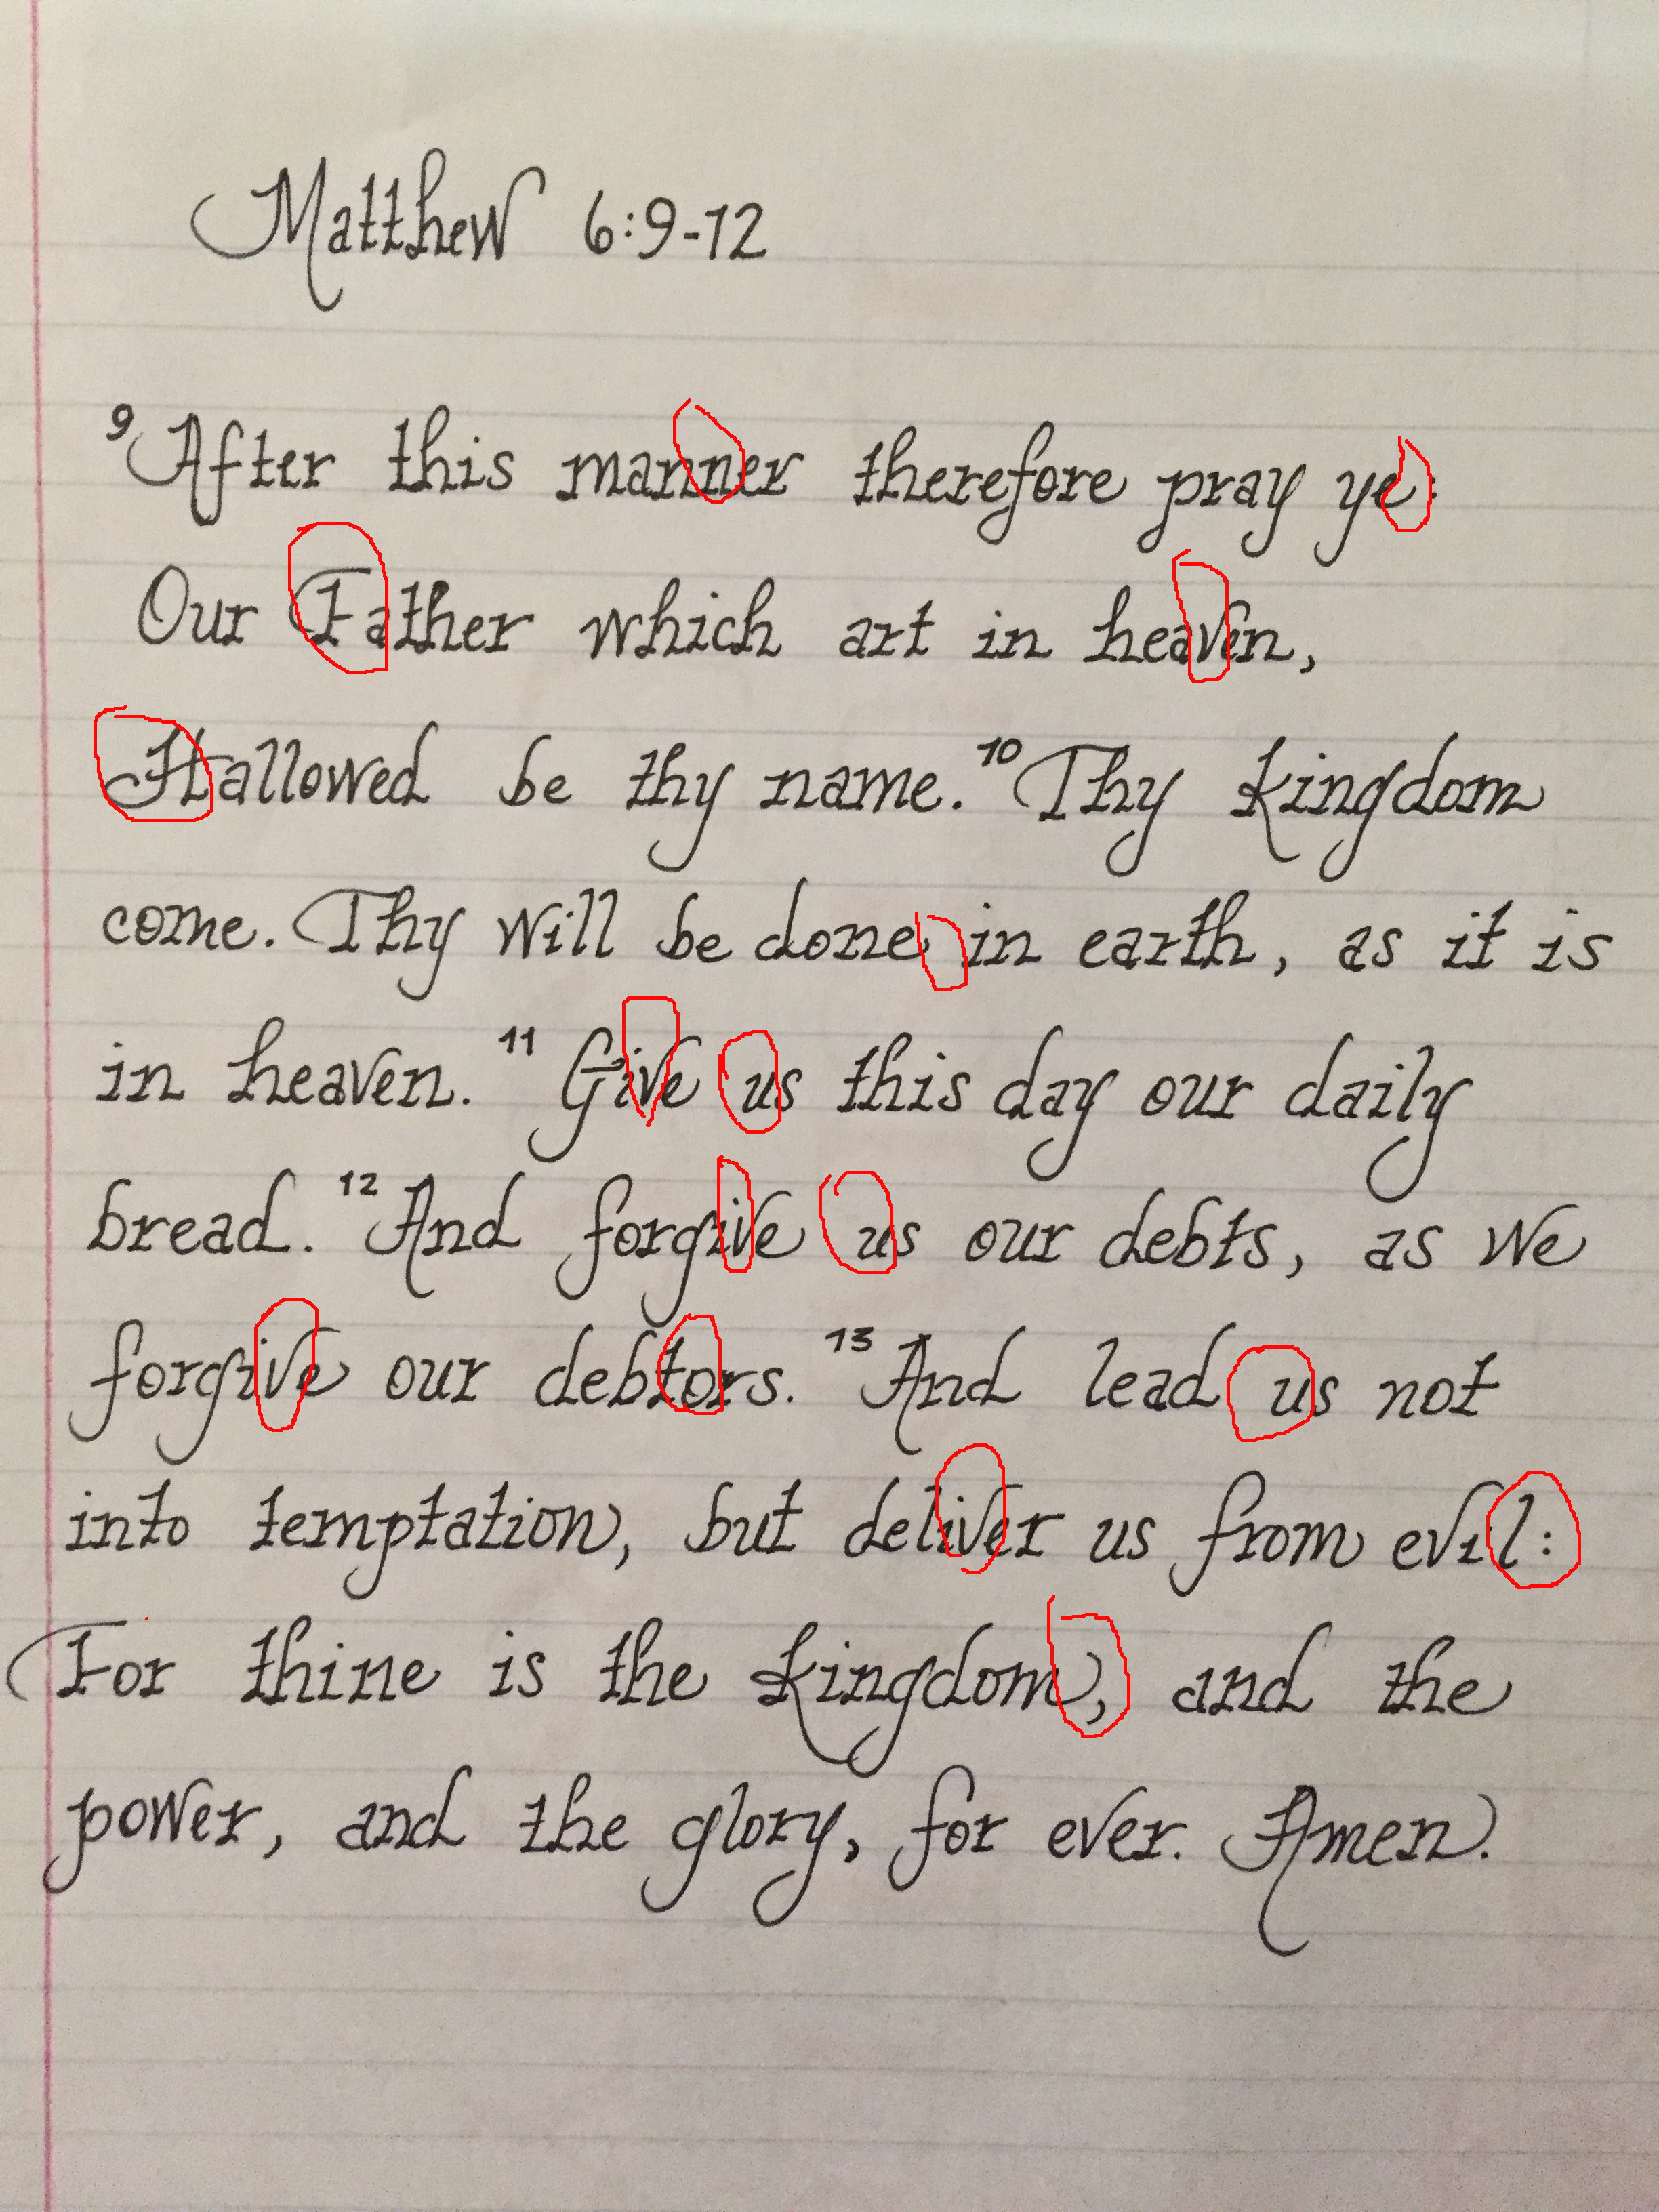 Matthew 6:9-12
9 After this manner therefore pray ye:
Our Father which art in heaven,
Hallowed be thy name. 10 Thy kingdom
come. Thy will be done in earth, as it is
in heaven. 11 Give us this day our daily
bread. 12 And forgive us our debts, as we
forgive our debtors. 13 And lead us not
into temptation, but deliver us from evil:
For thine is the kingdom, and the
power, and the glory, for ever. Amen.